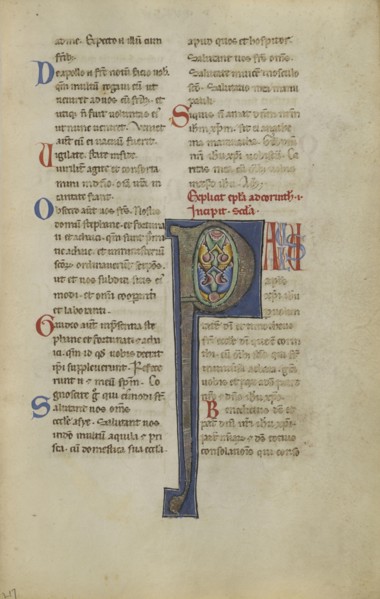 ad me. Expecto n illū cum
frib;
De apollo u frē notū facio uob
qm̄ multū rogaui eū ut
ueniret ad uos cū frib; et
utiq; n̄ fuit uoluntas ei
ut nunc ueniret. Veniet
aut̄ cū ei uacuū fuerit.
Uigilate. state in fide
uirilit̄ agite et conforta
mini in dn̄o. om̄ia urā in
caritate fiant.
Obsecro aut̄ uos frs̄. Nostis
domū stephane et fortuna
ti et achaici. qm̄ sunt p̄mi
tie achaie. et in ministeriū
scōꝝ ordinauerunt seip̄os.
ut et uos subditi sitis ei
modi. et om̄i cooperanti
et laboranti.
Gaudeo aut̄ in p̄sentia ste
phane et fortunati et achai
ci. qm̄ id qd̄ uobis deerat
ip̄i suppleuerunt. Refece
runt n̄ et meū sp̄m. Co
gnoscite g̊ qui ei modi st̄.
Salutant uos om̄s
eccl̄e asye. Salutant uos
in dn̄o multū aquila et pri
sca. cū domestica sua eccl̄a.
apud quos et hospitor.
Salutant uos frs̄ om̄s.
Salutate inuicē in osculo
scō. Salutatio mea manu
pauli.
Siquis n̄ amat dn̄m nr̄m
ihm̄ xpm̄. sit anathe
ma maranatha. Gr̄a dn̄i
nr̄i ihu xpi uobiscū. Ca
ritas mea cū om̄ib; uobis
in xpo ihu. Am̄.
Explicat epl̄a ad corinth. i.
Incipit. sc̄da.
PAULUS
apl̄s
xpi ihu
dei et timotheus
fr̄ eccl̄e dei que ē corin
thi. cū om̄ib; scīs qui st̄
in uniuersa achaia. gr̄a
uobis et pax a dō patre
nr̄o et dn̄o ihu xpo.
Benedictus ds̄ et
pat̄ dn̄i nr̄i ihu xpi.
pat̄ et ds̄ totius
consolationis. qui conso